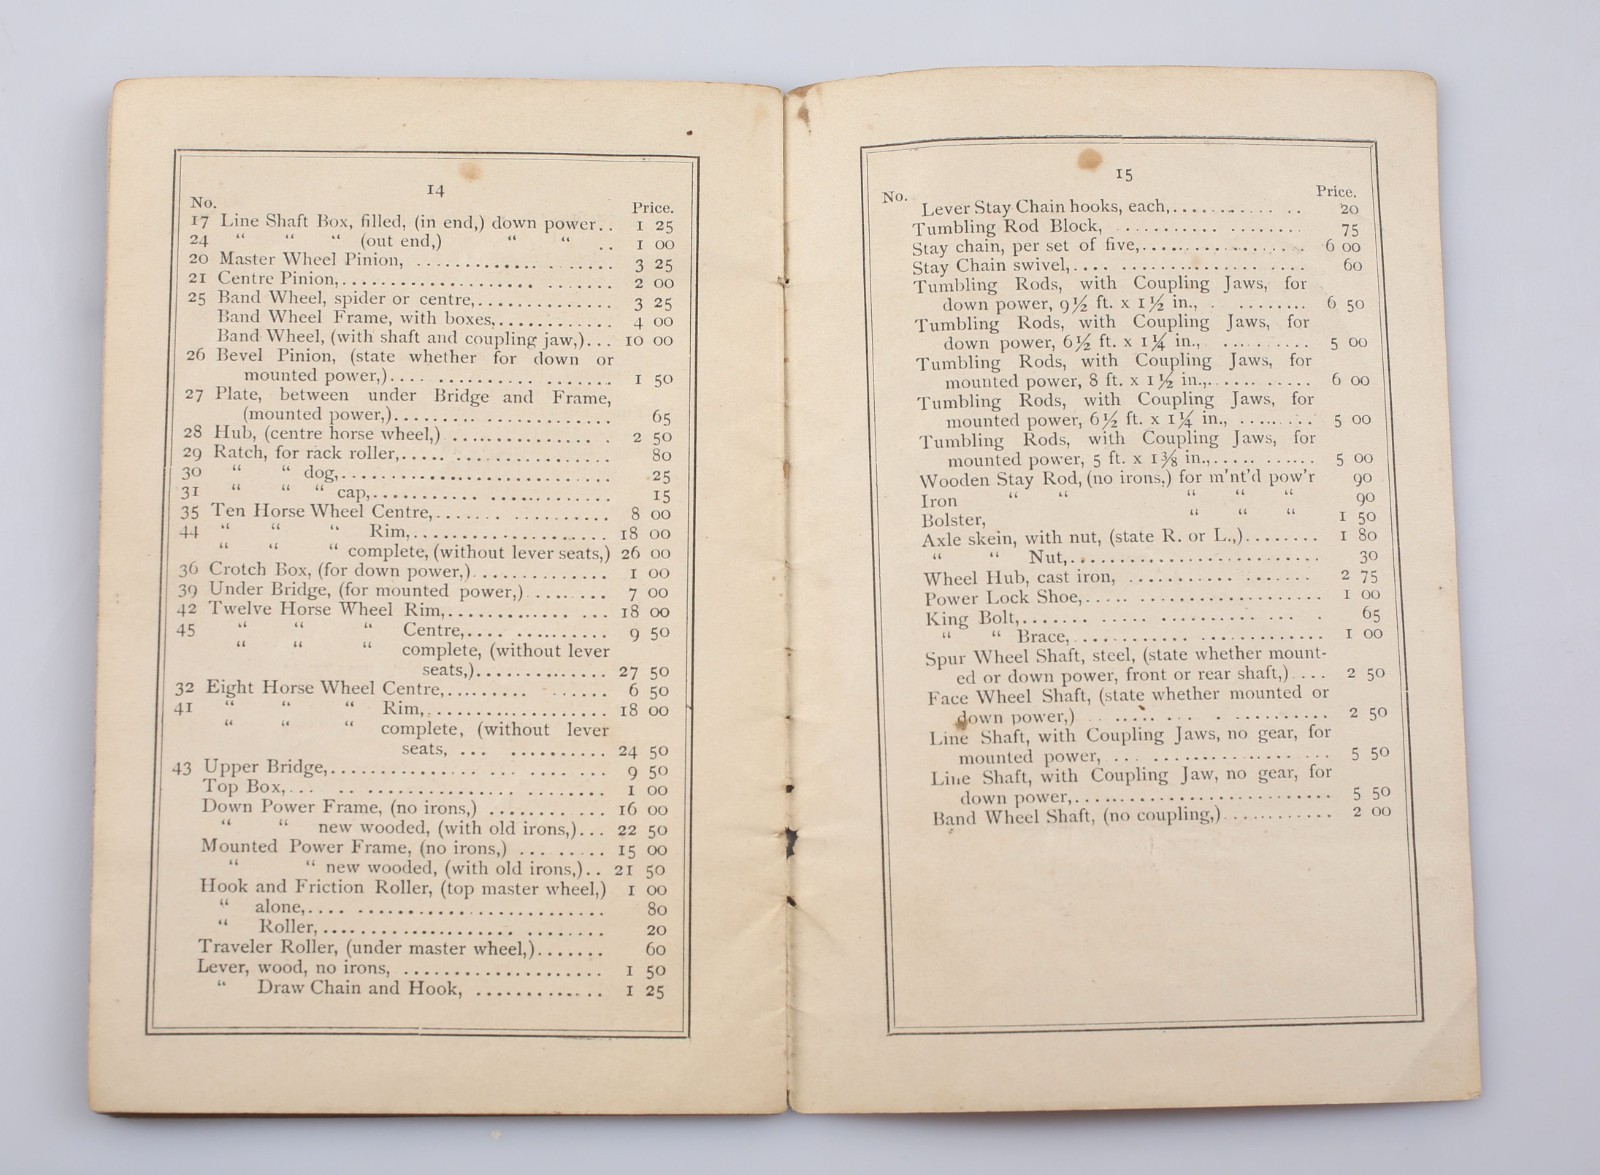 14
No. Price.
17 Line Shaft Box, filled, (in end,) down power.. 1 25
24 “ “ “ (out end,) “ “ .. 1 00
20 Master Wheel Pinion, .................... 3 25
21 Centre Pinion,.......................... 2 00
25 Band Wheel, spider or centre,.............. 3 25
Band Wheel Frame, with boxes,............ 4 00
Band Wheel, (with shaft and coupling jaw,)... 10 00
26 Bevel Pinion, (state whether for down or
mounted power,)...................... 1 50
27 Plate, between under Bridge and Frame,
(mounted power,)...................... 65
28 Hub, (centre horse wheel,) ................ 2 50
29 Ratch, for rack roller,..................... 80
30 “ “ dog,........................... 25
31 “ “ “ cap,........................ 15
35 Ten Horse Wheel Centre,.................. 8 00
44 “ “ “ Rim,.................... 18 00
“ “ “ complete, (without lever seats,) 26 00
36 Crotch Box, (for down power,).............. 1 00
39 Under Bridge, (for mounted power,) ........ 7 00
42 Twelve Horse Wheel Rim,................. 18 00
45 “ “ “ Centre,.............. 9 50
“ “ “ complete, (without lever
seats,).............. 27 50
32 Eight Horse Wheel Centre,................ 6 50
41 “ “ “ Rim,................... 18 00
“ “ “ complete, (without lever
seats, ............. 24 50
43 Upper Bridge,.......................... 9 50
Top Box,............................. 1 00
Down Power Frame, (no irons,) ........... 16 00
“ “ new wooded, (with old irons,)... 22 50
Mounted Power Frame, (no irons,) ......... 15 00
“ “ new wooded, (with old irons,).. 21 50
Hook and Friction Roller, (top master wheel,) 1 00
“ alone,........................... 80
“ Roller,.......................... 20
Traveler Roller, (under master wheel,)....... 60
Lever, wood, no irons, .................... 1 50
“ Draw Chain and Hook, ............. 1 25
15
No. Price.
Lever Stay Chain hooks, each,............. 20
Tumbling Rod Block, ................... 75
Stay chain, per set of five,................. 6 00
Stay Chain swivel,....................... 60
Tumbling Rods, with Coupling Jaws, for
down power, 9½ ft. x 1½ in., .......... 6 50
Tumbling Rods, with Coupling Jaws, for
down power, 6½ ft. x 1¼ in., .......... 5 00
Tumbling Rods, with Coupling Jaws, for
mounted power, 8 ft. x 1½ in.,........... 6 00
Tumbling Rods, with Coupling Jaws, for
mounted power, 6½ ft. x 1¼ in., ........ 5 00
Tumbling Rods, with Coupling Jaws, for
mounted power, 5 ft. x 1⅜ in.,........... 5 00
Wooden Stay Rod, (no irons,) for m'nt'd pow'r 90
Iron “ “ “ “ “ 90
Bolster, “ “ “ 1 50
Axle skein, with nut, (state R. or L.,)........ 1 80
“ “ Nut,......................... 30
Wheel Hub, cast iron, .................. 2 75
Power Lock Shoe,....................... 1 00
King Bolt,............................. 65
“ “ Brace,........................ 1 00
Spur Wheel Shaft, steel, (state whether mount-
ed or down power, front or rear shaft,).... 2 50
Face Wheel Shaft, (state whether mounted or
down power,) ...................... 2 50
Line Shaft, with Coupling Jaws, no gear, for
mounted power, ..................... 5 50
Line Shaft, with Coupling Jaw, no gear, for
down power,.......................... 5 50
Band Wheel Shaft, (no coupling,)............ 2 00